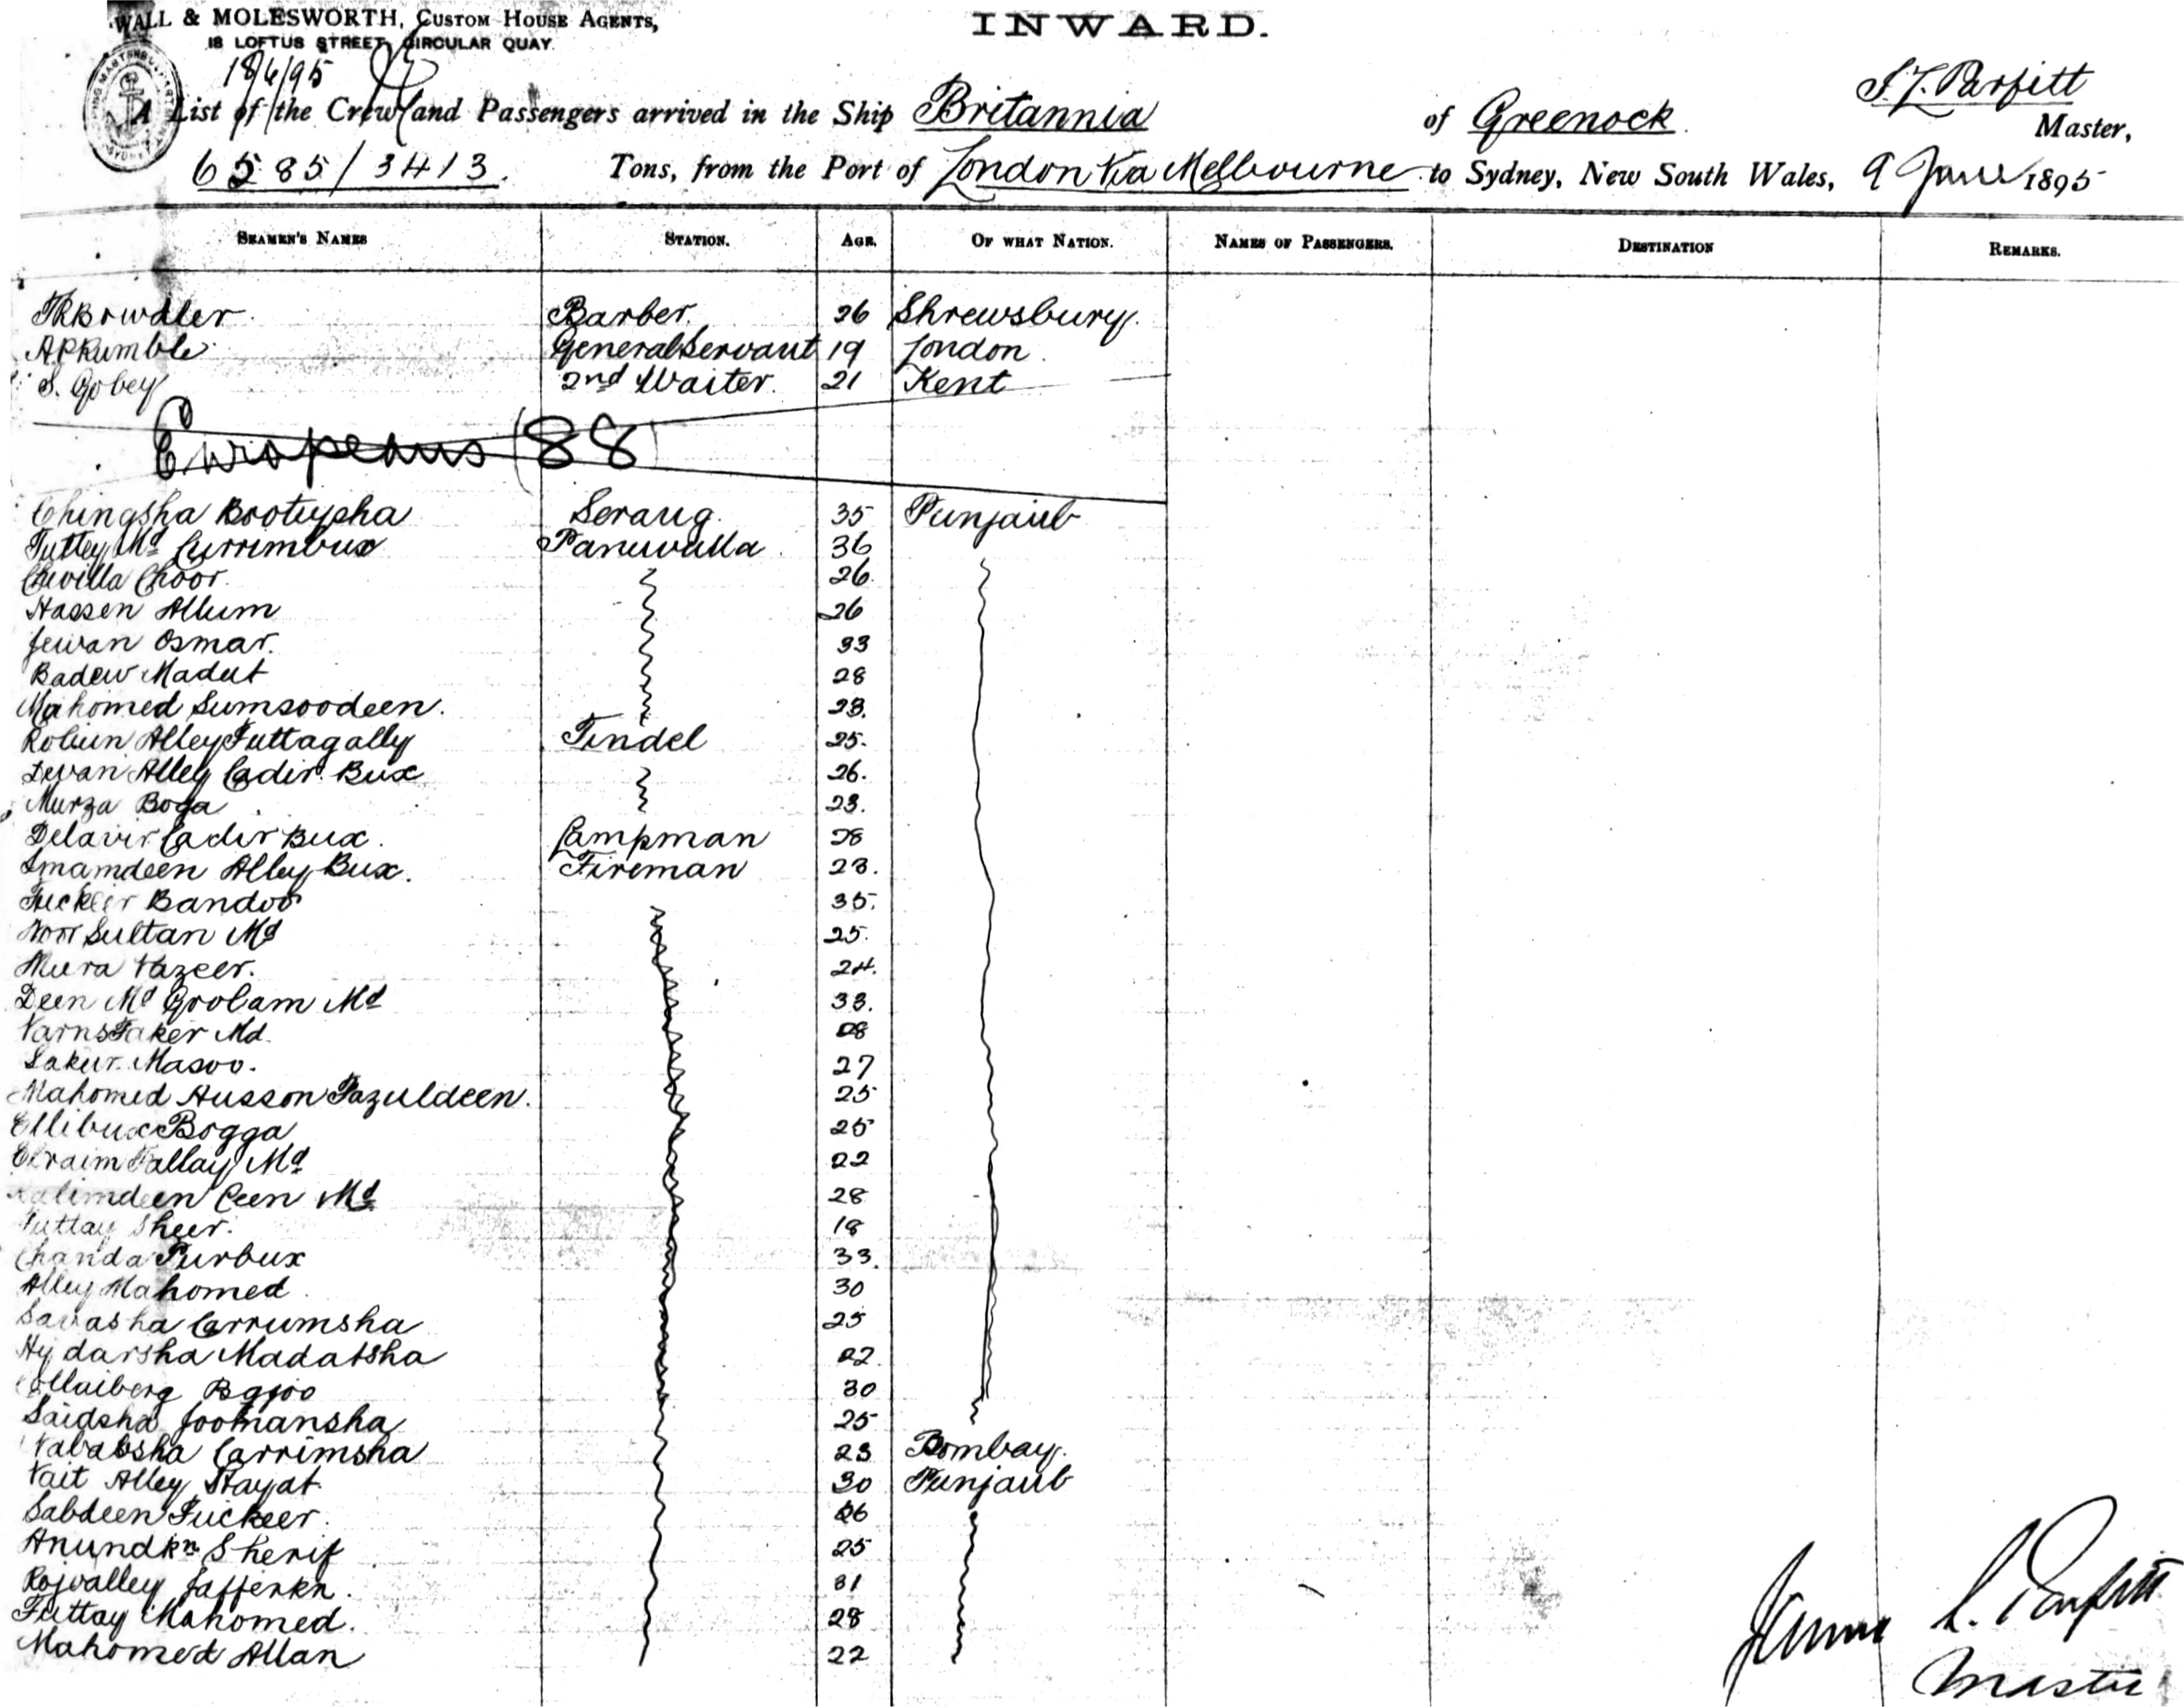 WALL & MOLESWORTH, CUSTOM HOUSE AGENTS,
18 LOFTUS STREET, CIRCULAR QUAY.
INWARD.
18/6/95
J.L. Parfitt
A List of the Crew and Passengers arrived in the Ship Britannia of Greenock Master,
6585/3413. Tons, from the Port of London Via Melbourne to Sydney, New South Wales, 9 June 1895
SEAMEN'S NAMES STATION. AGE. OF WHAT NATION. NAMES OF PASSENGERS. DESTINATION REMARKS.
Bowdler Barber. 26 Shrewsbury.
A.P. Rumble General Servant 19 London.
S. Gobey 2nd Waiter. 21 Kent
Europeans (88)
Chingsha Bootuysha Serang. 35 Punjaub
Futtey Md Currimbux Paniwalla. 36
Choor. 26.
Hassen Allum 26
Jewan Osmar. 33
Badew Madut 28
Mahomed Sumsoodeen. 23.
Alley Futtagally Tindel 25.
Devan Alley Cadir Bux 26.
Murza Boga 23.
Delavir Cadir Bux. Lampman 28
Imamdeen Alley Bux. Fireman 23.
Fuckeer Bandoo 35.
Noor Sultan Md 25.
Mura Vazeer. 24.
Deen Md Goolam Md 33.
Faker Md. 28
Sakur Masoo. 27
Mahomed Husson Fazuldeen. 25
Ellibux Bogga 25
Ebraim Fallay Md 22
Deen Md 28
Futtay Sheer. 18
Chanda Purbux 33.
Alley Mahomed 30
Savasha Carrumsha 25
Hydarsha Madatsha 22.
30
Saidsha Joomansha 25
Nababsha Carrimsha 23 Bombay.
Vait Alley Hayat. 30 Punjaub
Sabdeen Fuckeer. 26
Anundkn Sherif 25
Rojvalley Jafferkn. 31
Futtay Mahomed. 28
Mahomed Allan 22
Parfitt
Master